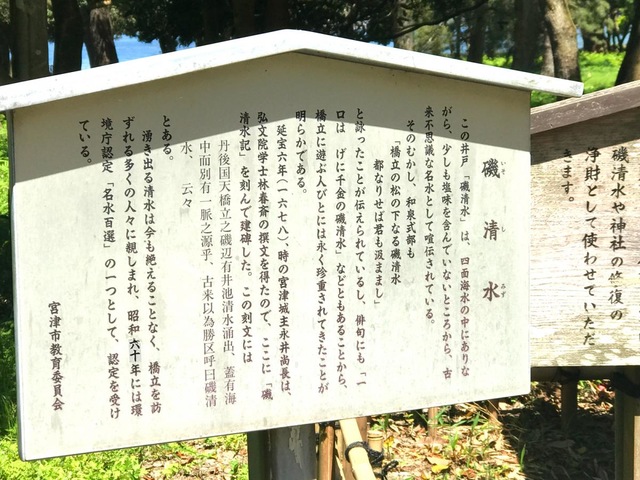 磯清水
いそ　し　みず
この井戸「磯清水」は、四面海水の中にありな
がら、少しも塩味を含んでいないところから、古
来不思議な名水として喧伝されている。
そのむかし、和泉式部も
「橋立の松の下なる磯清水
都なりせば君も汲ままし」
と詠ったことが伝えられているし、俳句にも「一
口は　げに千金の磯清水」などともあることから、
橋立に遊ぶ人びとには永く珍重されてきたことが
明らかである。
延宝六年（一六七八）、時の宮津城主永井尚長は、
弘文院学士林春斎の撰文を得たので、ここに「磯
清水記」を刻んで建碑した。この刻文には
丹後国天橋立之磯辺有井池清水涌出、蓋有海
中而別有一脈之源乎、古来以為勝区呼曰磯清
水、云々
とある。
湧き出る清水は今も絶えることなく、橋立を訪
ずれる多くの人々に親しまれ、昭和六十年には環
境庁認定「名水百選」の一つとして、認定を受け
ている。
宮津市教育委員会
磯清水や神社の修復の
浄財として使わせていただ
きます。